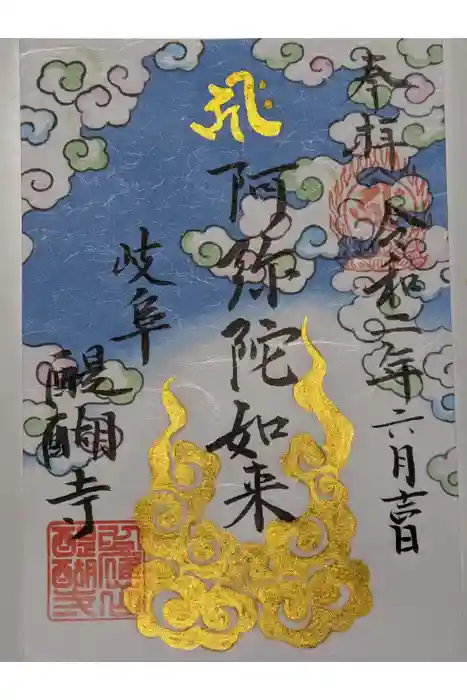 奉拝
令和二年六月吉日
𑖮𑖿𑖨𑖱𑖾
阿弥陀如来
岐阜
醍醐寺